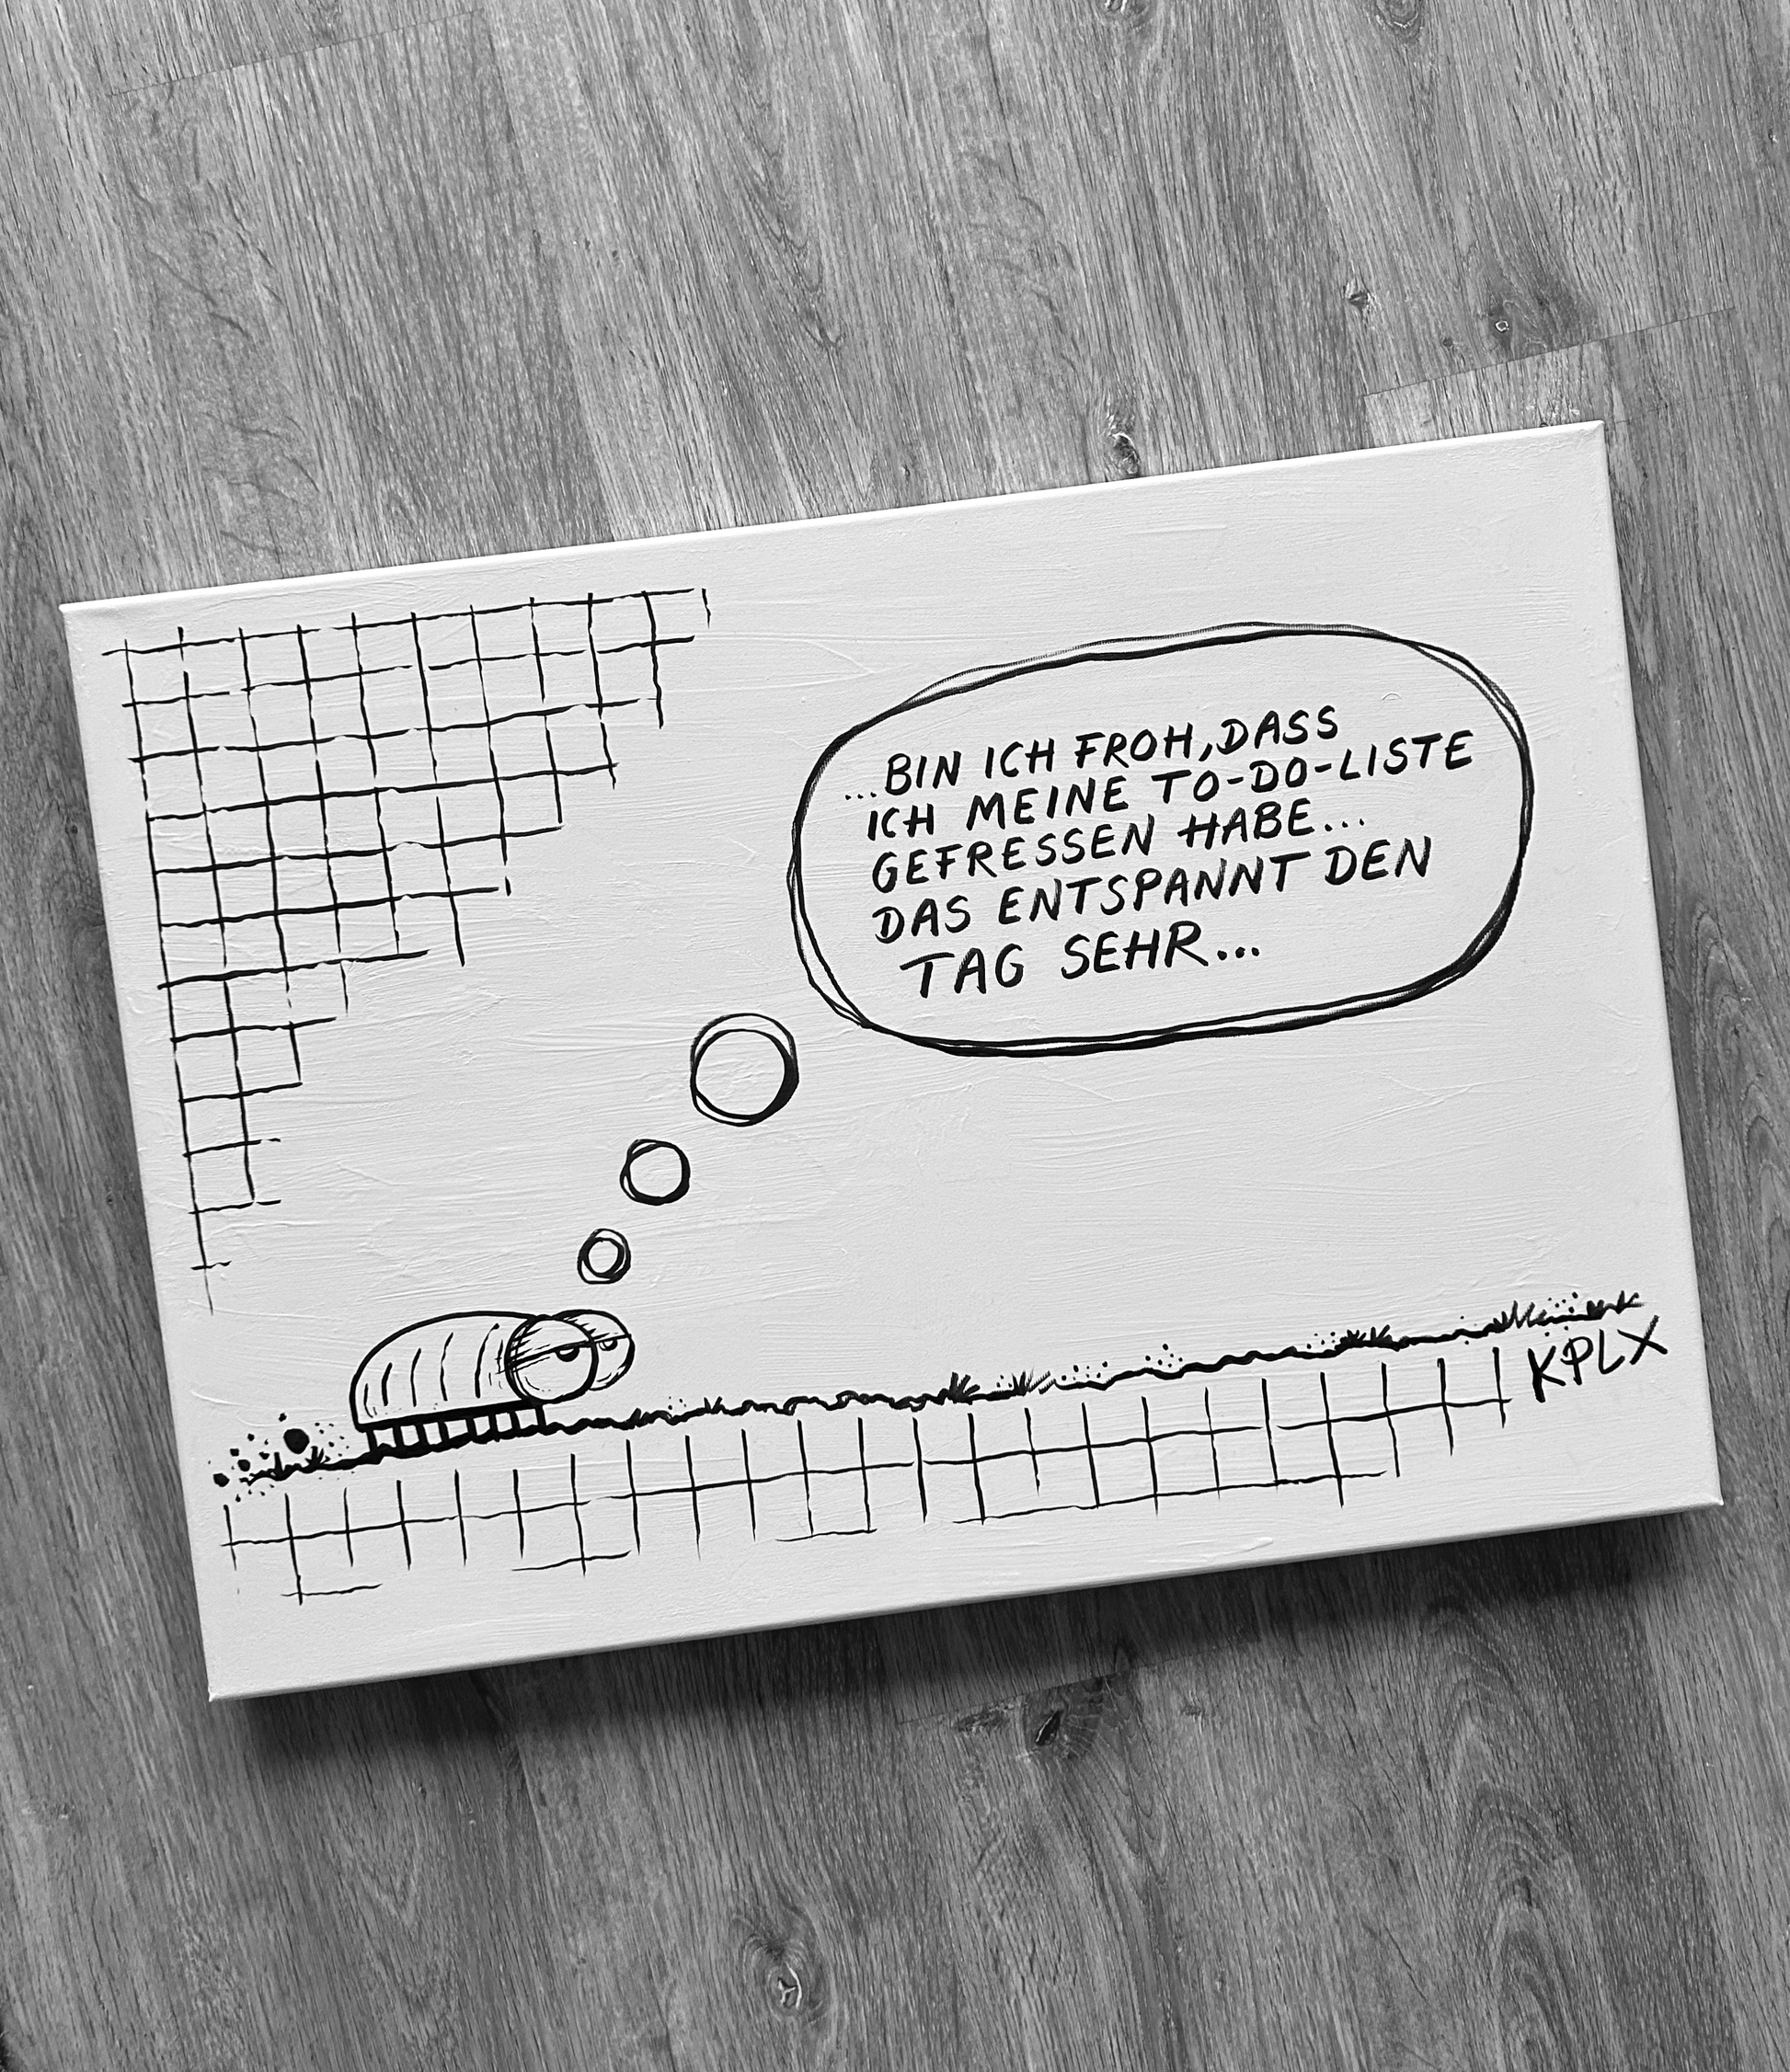 ...BIN ICH FROH, DASS
ICH MEINE TO-DO-LISTE
GEFRESSEN HABE...
DAS ENTSPANNT DEN
TAG SEHR...
KPLX